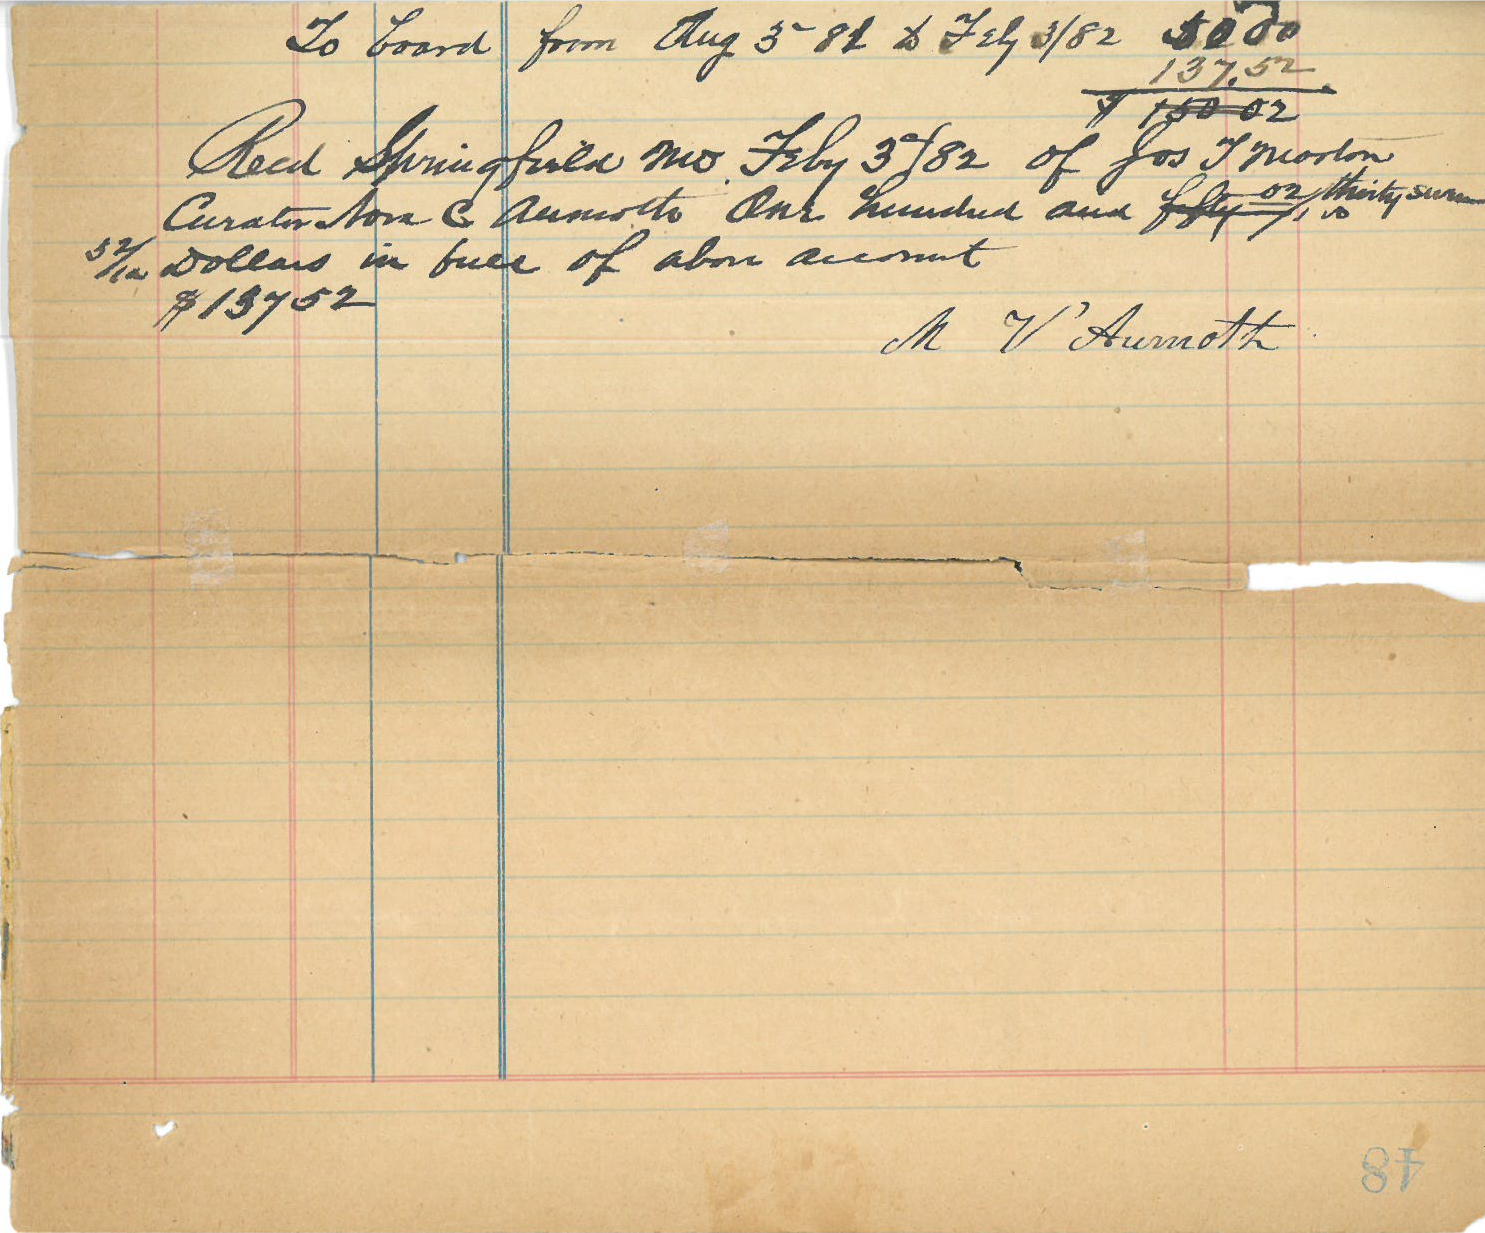 To board from Aug 3 - 81 to Feby 3/82 50 00
137.52
$ 150 02
Recd Springfield Mo. Feby 3d/82 of Jos T Morton
Curator Nora C Aumoth One hundred and fifty 02/100 thirty seven
52/100 Dollars in full of above account
$137 52
M V Aumoth
48